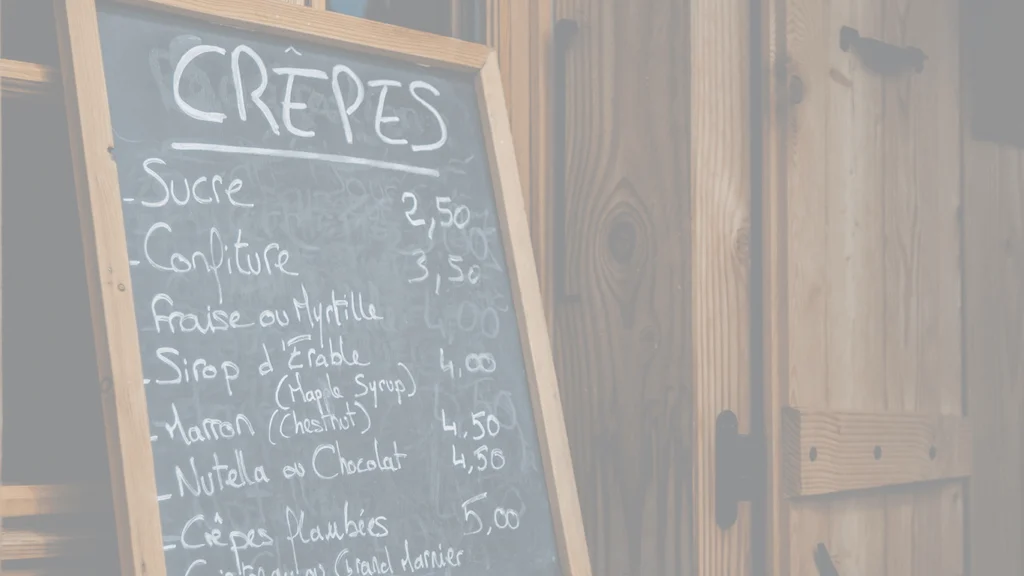 CRÊPES
- Sucre 2,50
- Confiture 3,50
Fraise ou Myrtille
- Sirop d'Érable 4,00
(Maple Syrup)
- Marron (Chestnut) 4,50
- Nutella ou Chocolat 4,50
- Crêpes flambées 5,00
ou Grand Marnier